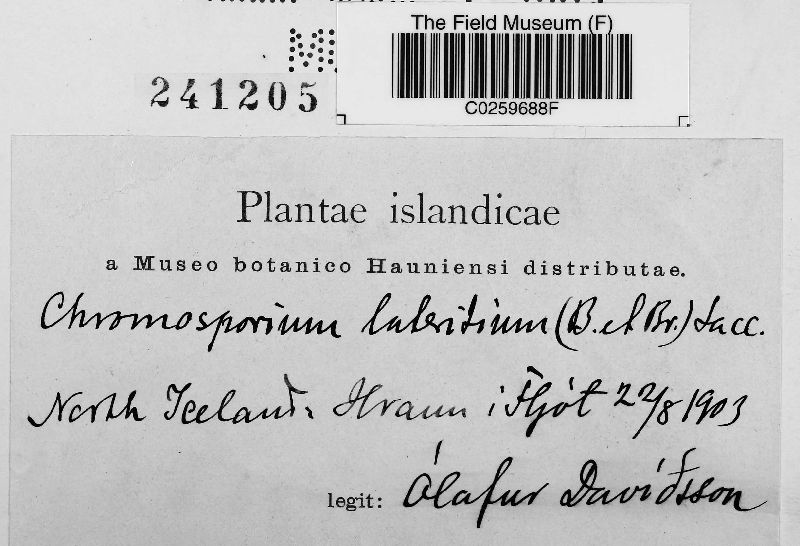 The Field Museum (F)
C0259688F
241205
Plantae islandicae
a Museo botanico Hauniensi distributae.
Chromosporium lateritium (B. et Br.) Sacc.
North Iceland. Hraun i Fljót 22/8 1903
legit: Ólafur Davíðsson